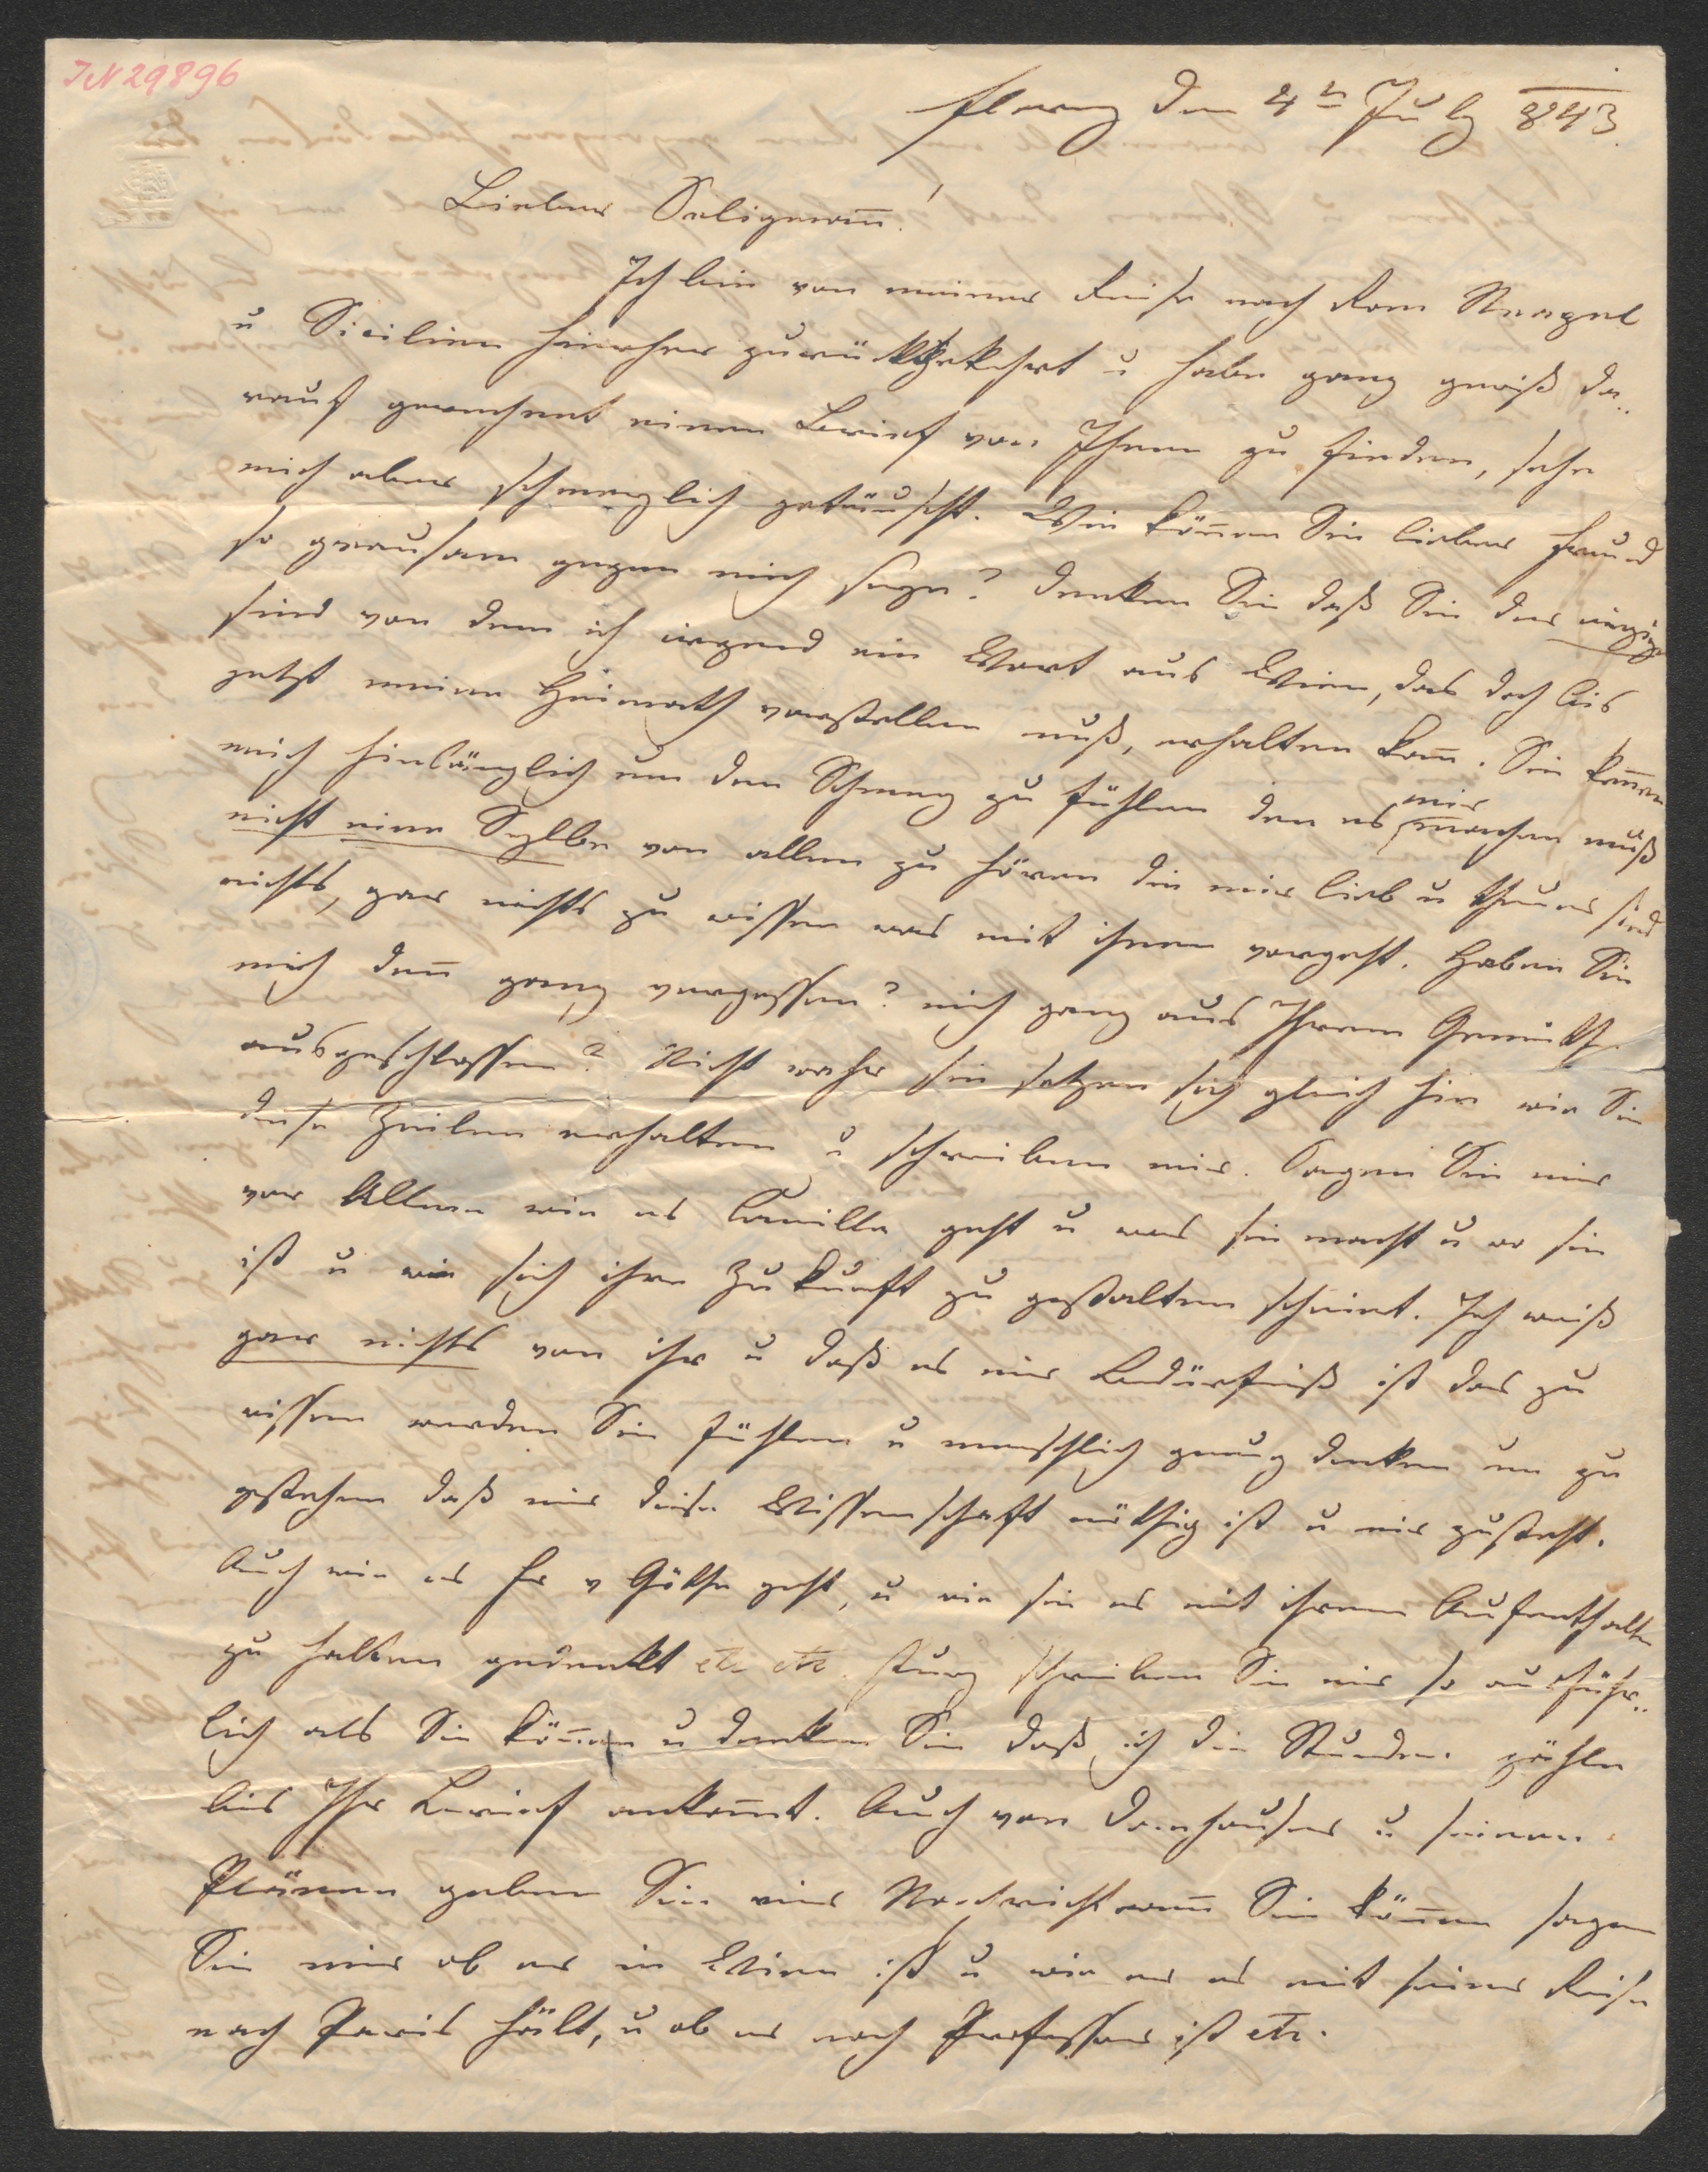 IN 29896
Florenz den 4t July 843.
Lieber Seligmañ!
Ich bin von meiner Reise nach Rom Neapel
u Sicilien hierher zurückgekehrt u habe ganz gewiß da¬
rauf gerechnet einen Brief von Ihnen zu finden, sehe
mich aber schmerzlich getäuscht. Wie köñen Sie lieber Freund
so grausam gegen mich seyn? denken Sie daß Sie der einzige
sind von dem ich irgend ein Wort aus Wien, das doch bis
jetzt meine Heimath vorstellen muß, erhalten kañ. Sie keñen
mich hinlänglich um den Schmerz zu fühlen den es mir machen muß
nicht eine Sylbe von allen zu hören die mir lieb u theuer sind
nichts, gar nichts zu wissen was mit ihnen vorgeht. Haben Sie
mich deñ ganz vergessen? mich ganz aus Ihrem Gemüthe
ausgeschlossen? Nicht wahr sie setzen sich gleich hin wie Sie
diese Zeilen erhalten u schreiben mir. Sagen Sie mir
vor Allem wie es Camilla geht u was sie macht u wo sie
ist u wie sich ihre Zukunft zu gestalten scheint. Ich weiß
gar nichts von ihr u daß es mir Bedürfniß ist das zu
wissen werden Sie fühlen u menschlich genug denken um zu
gestehen daß mir diese Wissenschaft nöthig ist u mir zusteht.
Auch wie es Fr v Göthe geht, u wie sie es mit ihrem Aufenthalte
zu halten gedenkt etc etc. Kurz schreiben Sie mir so ausführ¬
lich als Sie köñen u denken Sie daß ich die Stunden zähle
bis Ihr Brief ankom̄t. Auch von Danhauser u seinen
Plänen geben Sie mir Nachricht wañ Sie köñen sagen
Sie mir ob er in Wien ist u wie er es mit seiner Reise
nach Paris hält, u ob er noch Professor ist etc.